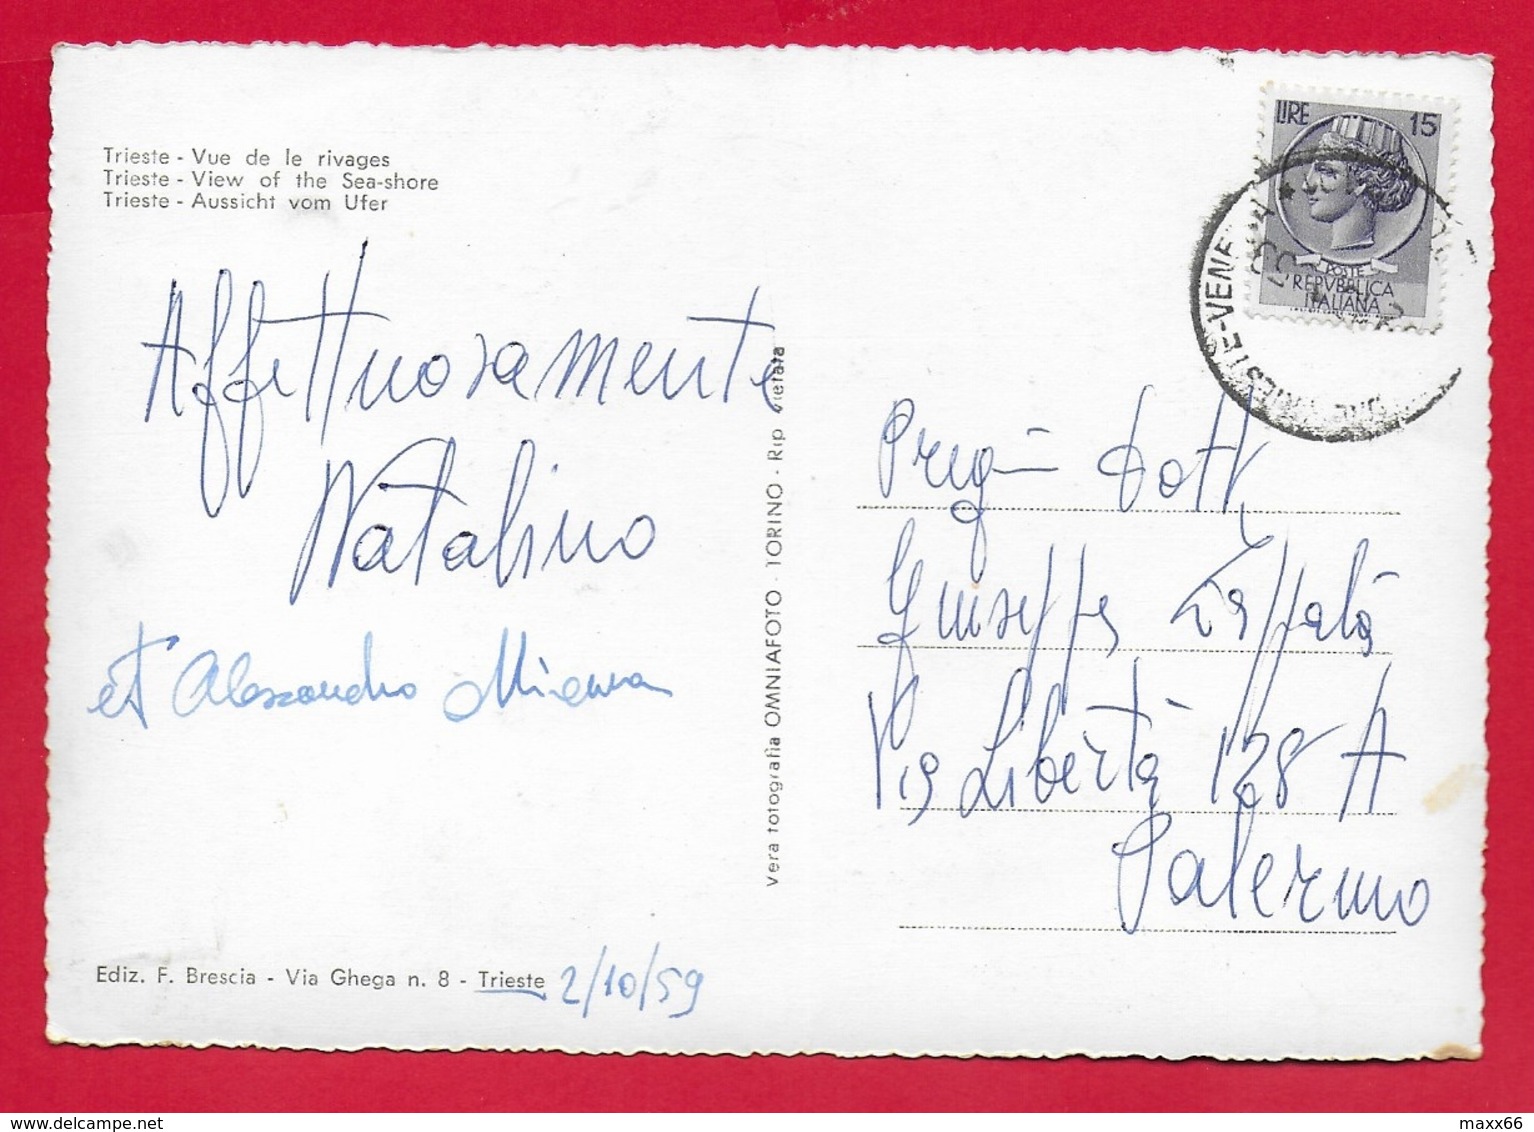 Trieste - Vue de le rivages
Trieste - View of the Sea-shore
Trieste - Aussicht vom Ufer
Affettuosamente
Natalino
et Alessandro
Ediz. F. Brescia - Via Ghega n. 8 - Trieste 2/10/59
Vera fotografia OMNIAFOTO - TORINO - Rip. vietata
LIRE 15
POSTE
REPVBBLICA
ITALIANA
Dott.
Giuseppe Zappalà
Via Libertà 128 A
Palermo
www.delcampe.net
maxx66